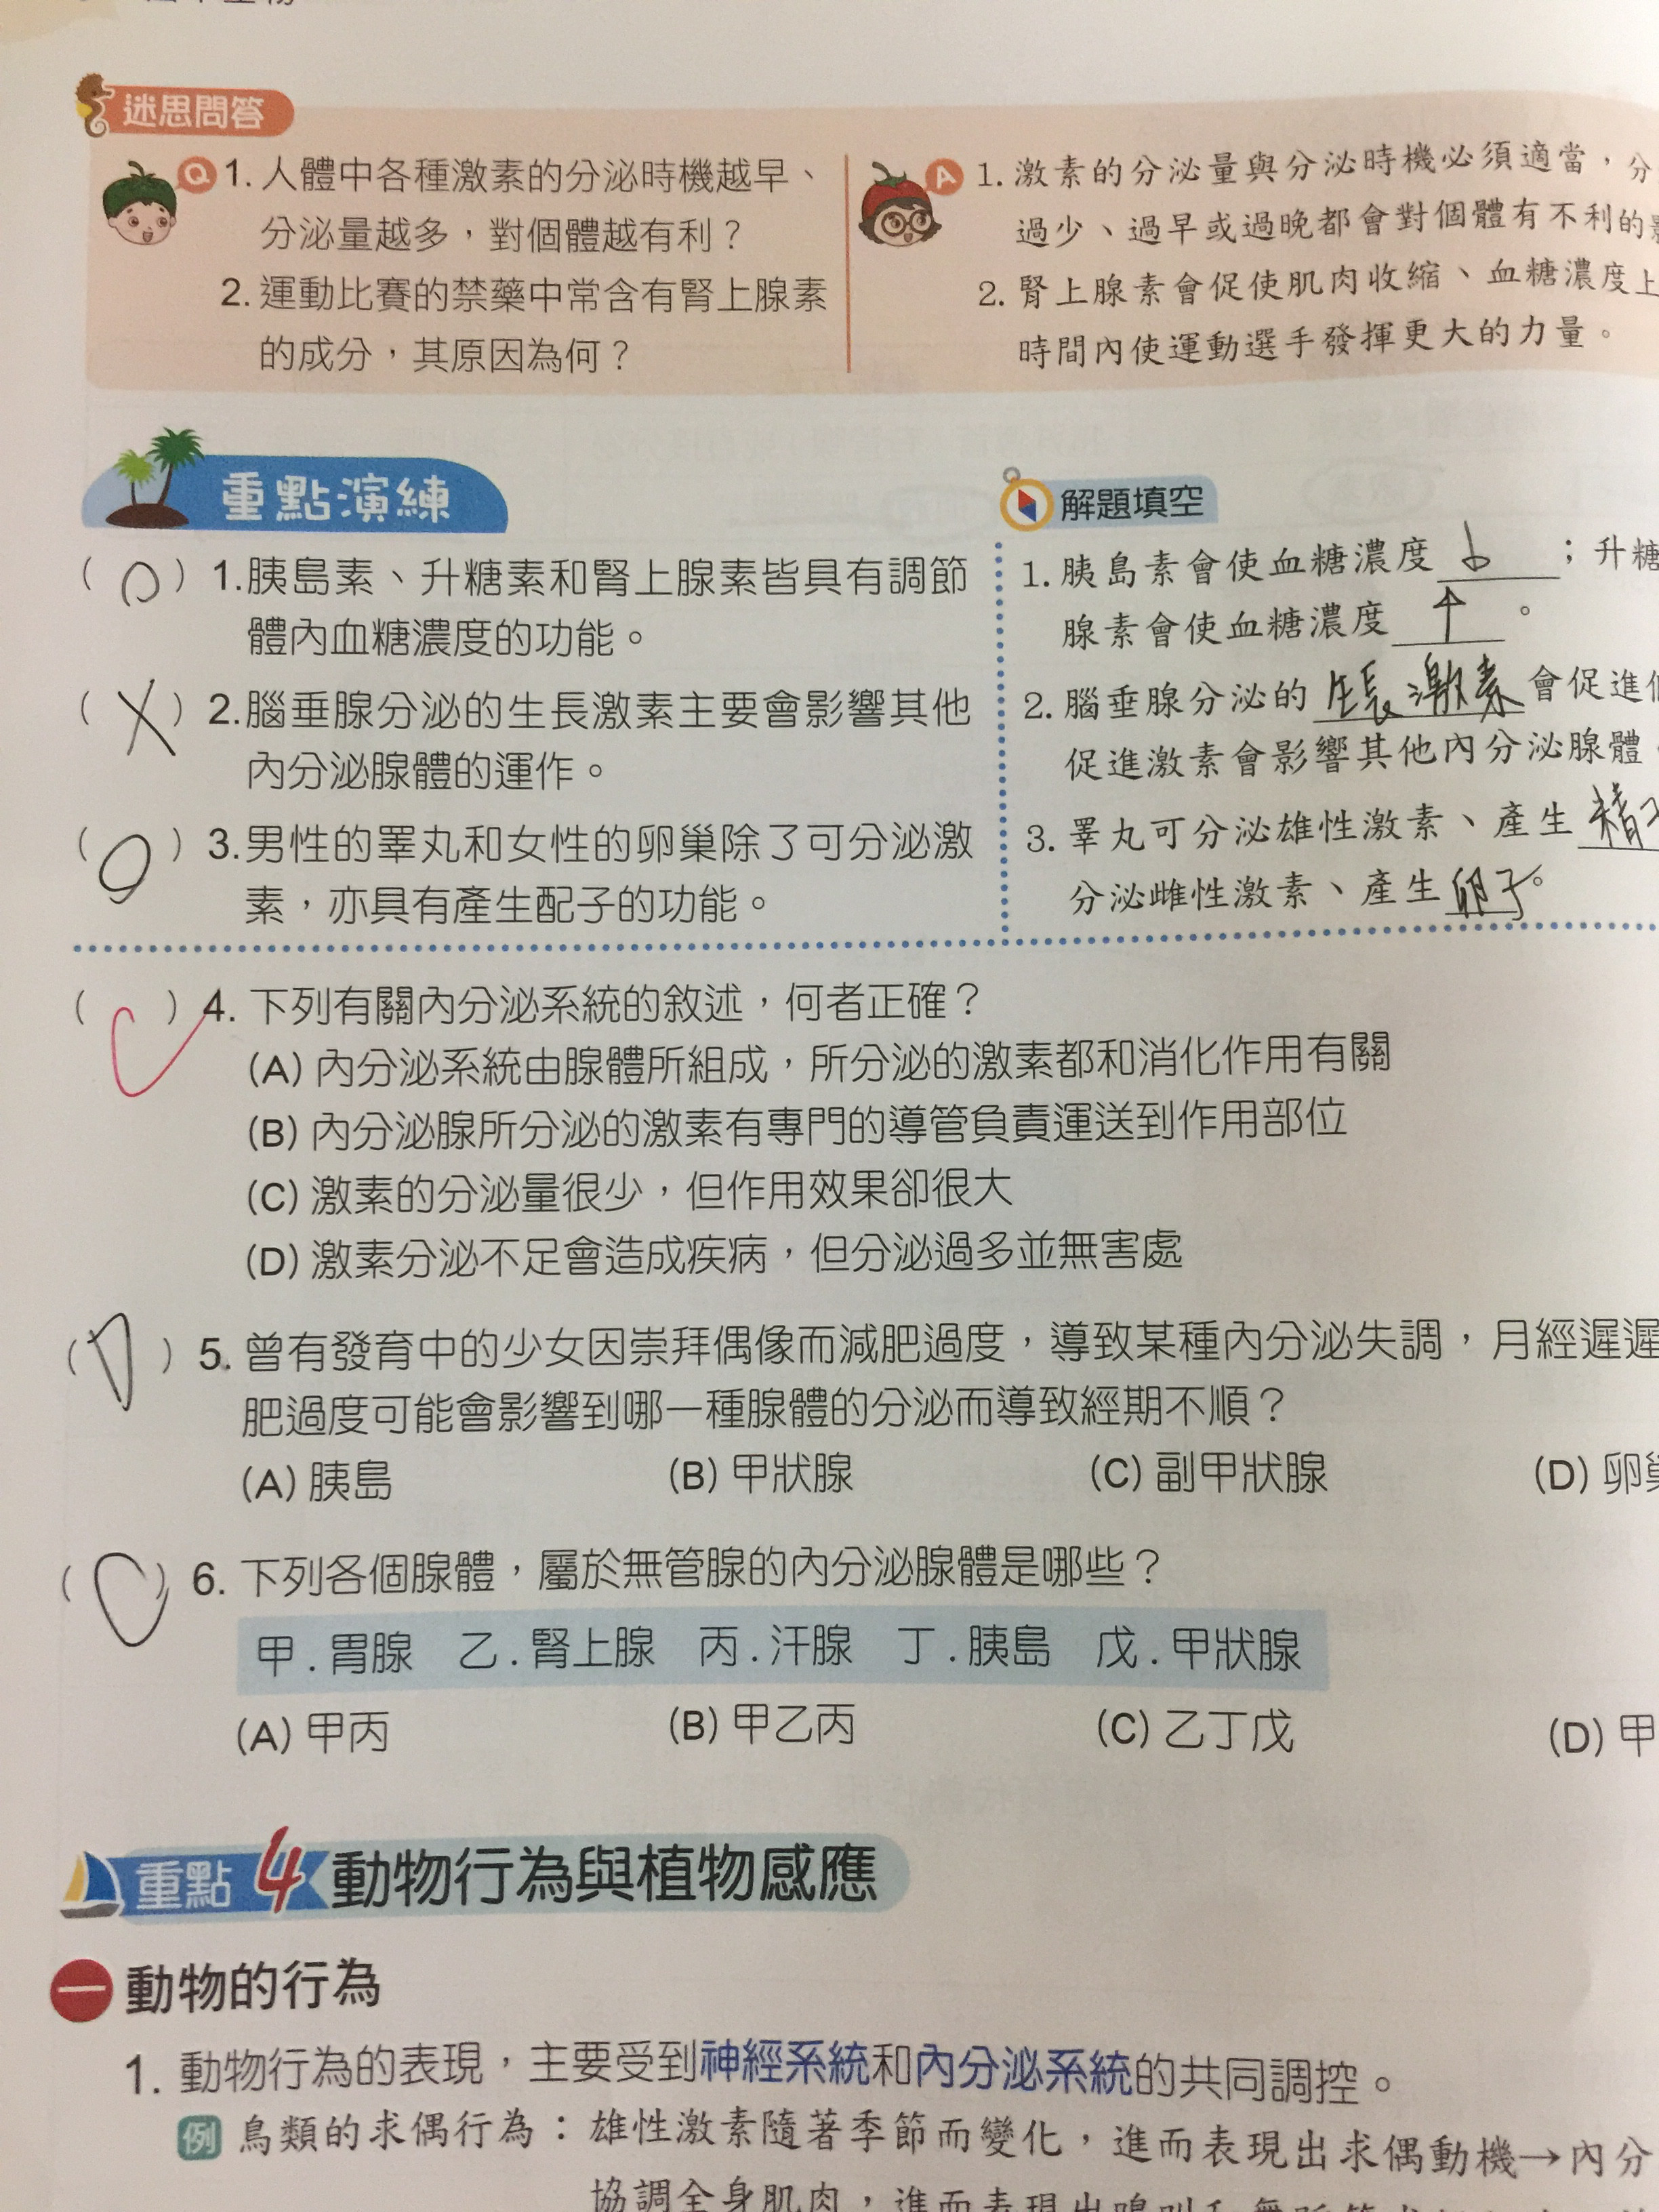 迷思問答
Q 1. 人體中各種激素的分泌時機越早、
分泌量越多，對個體越有利？
2. 運動比賽的禁藥中常含有腎上腺素
的成分，其原因為何？
A 1. 激素的分泌量與分泌時機必須適當，分
過少、過早或過晚都會對個體有不利的
2. 腎上腺素會促使肌肉收縮、血糖濃度上
時間內使運動選手發揮更大的力量。
重點演練
( O ) 1.胰島素、升糖素和腎上腺素皆具有調節
體內血糖濃度的功能。
( X ) 2.腦垂腺分泌的生長激素主要會影響其他
內分泌腺體的運作。
( O ) 3.男性的睪丸和女性的卵巢除了可分泌激
素，亦具有產生配子的功能。
解題填空
1. 胰島素會使血糖濃度 ↓ ；升糖
腺素會使血糖濃度 ↑ 。
2. 腦垂腺分泌的 生長激素 會促進
促進激素會影響其他內分泌腺體
3. 睪丸可分泌雄性激素、產生 精子
分泌雌性激素、產生 卵子。
( C ) 4. 下列有關內分泌系統的敘述，何者正確？
(A) 內分泌系統由腺體所組成，所分泌的激素都和消化作用有關
(B) 內分泌腺所分泌的激素有專門的導管負責運送到作用部位
(C) 激素的分泌量很少，但作用效果卻很大
(D) 激素分泌不足會造成疾病，但分泌過多並無害處
( D ) 5. 曾有發育中的少女因崇拜偶像而減肥過度，導致某種內分泌失調，月經遲遲
肥過度可能會影響到哪一種腺體的分泌而導致經期不順？
(A) 胰島 (B) 甲狀腺 (C) 副甲狀腺 (D) 卵巢
( C ) 6. 下列各個腺體，屬於無管腺的內分泌腺體是哪些？
甲.胃腺 乙.腎上腺 丙.汗腺 丁.胰島 戊.甲狀腺
(A) 甲丙 (B) 甲乙丙 (C) 乙丁戊 (D) 甲
重點 4 動物行為與植物感應
一 動物的行為
1. 動物行為的表現，主要受到神經系統和內分泌系統的共同調控。
例 鳥類的求偶行為：雄性激素隨著季節而變化，進而表現出求偶動機→內分
協調全身肌肉，進而表現出鳴叫